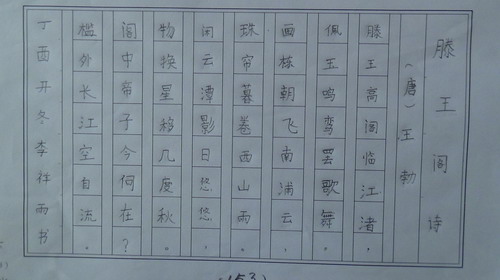 滕王阁诗
（唐）王勃
滕王高阁临江渚，
佩玉鸣鸾罢歌舞。
画栋朝飞南浦云，
珠帘暮卷西山雨。
闲云潭影日悠悠，
物换星移几度秋。
阁中帝子今何在？
槛外长江空自流。
丁酉开冬李祥雨书
(53)